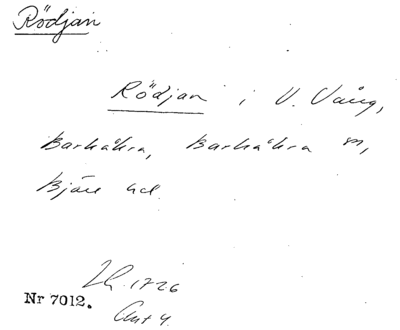 Rödjan
Rödjan i V. Vång,
Barkåkra, Barkåkra sn,
Bjäre hd.
LR. 1726
Nr 7012.
Akt 4.